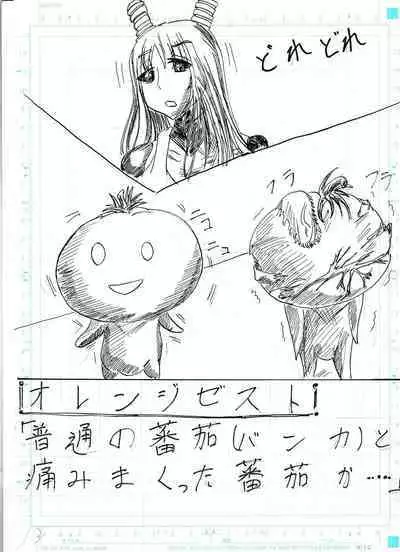 どれどれ
ニコ
ニコ
フラ
フラ
オレンジゼスト
「普通の蕃茄(バンカ)と
痛みまくった蕃茄か……」